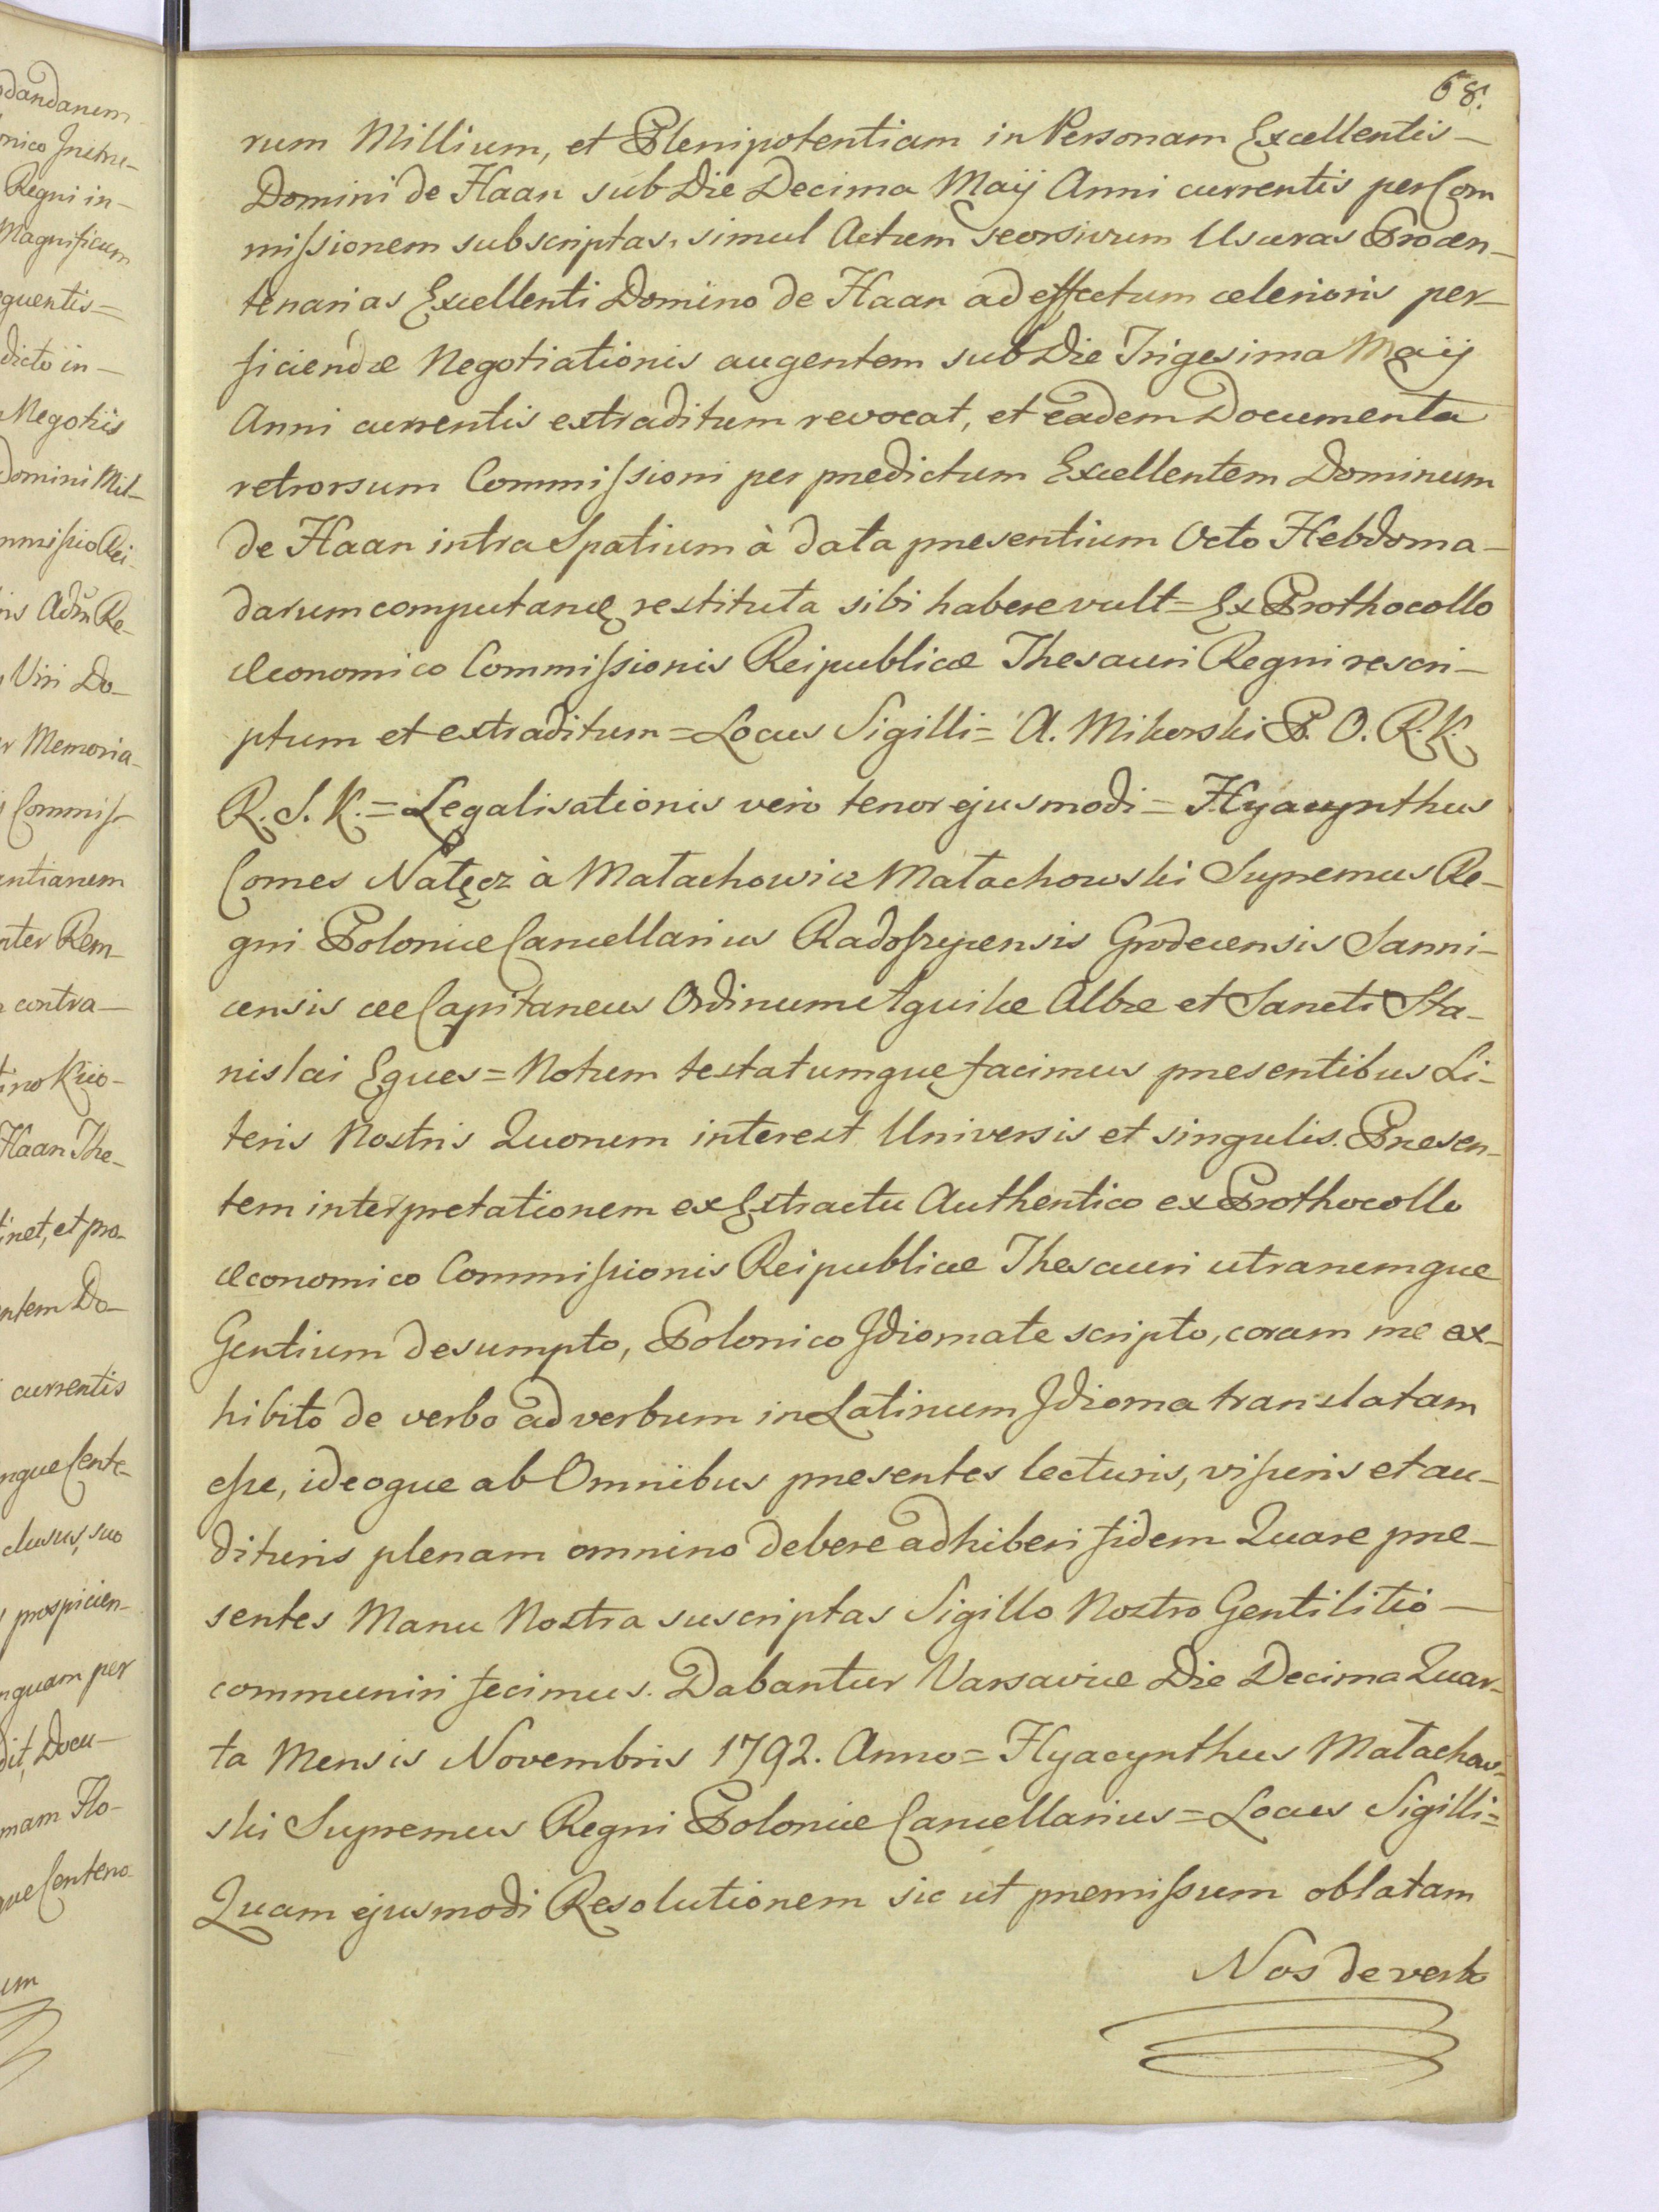 68.
rum Millium, et Plenipotentiam in Personam Excellentis—
Domini de Haan sub Die Decima Maij Anni currentis per Com
missionem subscriptas, simul Actum seorsivum Usuras Procen-
tenarias Excellenti Domino de Haan ad effectum celerioris per-
ficiendæ Negotiationis augentem sub Die Trigesima Maij
Anni currentis extraditum revocat, et eadem Documenta
retrorsum Commissioni per predictum Excellentem Dominum
de Haan intra Spatium à data presentium Octo Hebdoma-
darum computanę restituta sibi habere vult = Ex Prothocollo
Œconomico Commissionis Reipublicæ Thesauri Regni rescri-
ptum et extraditum = Locus Sigilli = A. Mikorski P. O. R. K.
R. S. K. = Legalisationis vero tenor ejusmodi = Hyacynthus
Comes Nałęcz à Małachowice Małachowski Supremus Re-
gni Poloniæ Cancellarius Radoszycensis Grodecensis Sanni-
censis &c Capitaneus Ordinum Aquilæ Albæ et Sancti Sta-
nislai Eques = Notum testatumque facimus presentibus Li-
teris Nostris Quorum interest Universis et singulis. Presen-
tem interpretationem ex Extractu Authentico ex Prothocollo
Œconomico Commissionis Reipublicæ Thesauri utrarumque
Gentium desumpto, Polonico Idiomate scripto, coram me ex-
hibito de verbo ad verbum in Latinum Idioma translatam
esse, ideoque ab Omnibus presentes lecturis, visuris et au-
dituris plenam omnino debere adhiberi fidem Quare pre-
sentes Manu Nostra suscriptas Sigillo Nostro Gentilitio —
communiri fecimus. Dabantur Varsaviæ Die Decima Quar-
ta Mensis Novembris 1792. Anno = Hyacynthus Małachow-
ski Supremus Regni Poloniæ Cancellarius = Locus Sigilli =
Quam ejusmodi Resolutionem sic ut premissum oblatam
Nos de verbo